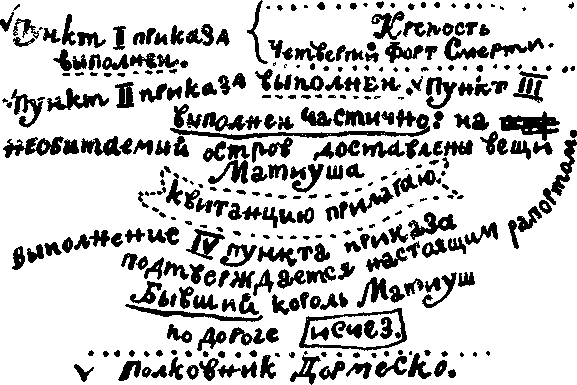 Пункт I приказа
выполнен.
Крепость
Четвертий Форт Смерти.
Пункт II приказа выполнен Пункт III
выполнен частично: на
необитаемий остров доставлени вещи
Матиуша
квитанцию прилагаю.
Выполнение IV пункта приказа
подтверждается настоящим рапортом.
Бывший король Матиуш
по дороге исчез.
Полковник Дормеско.